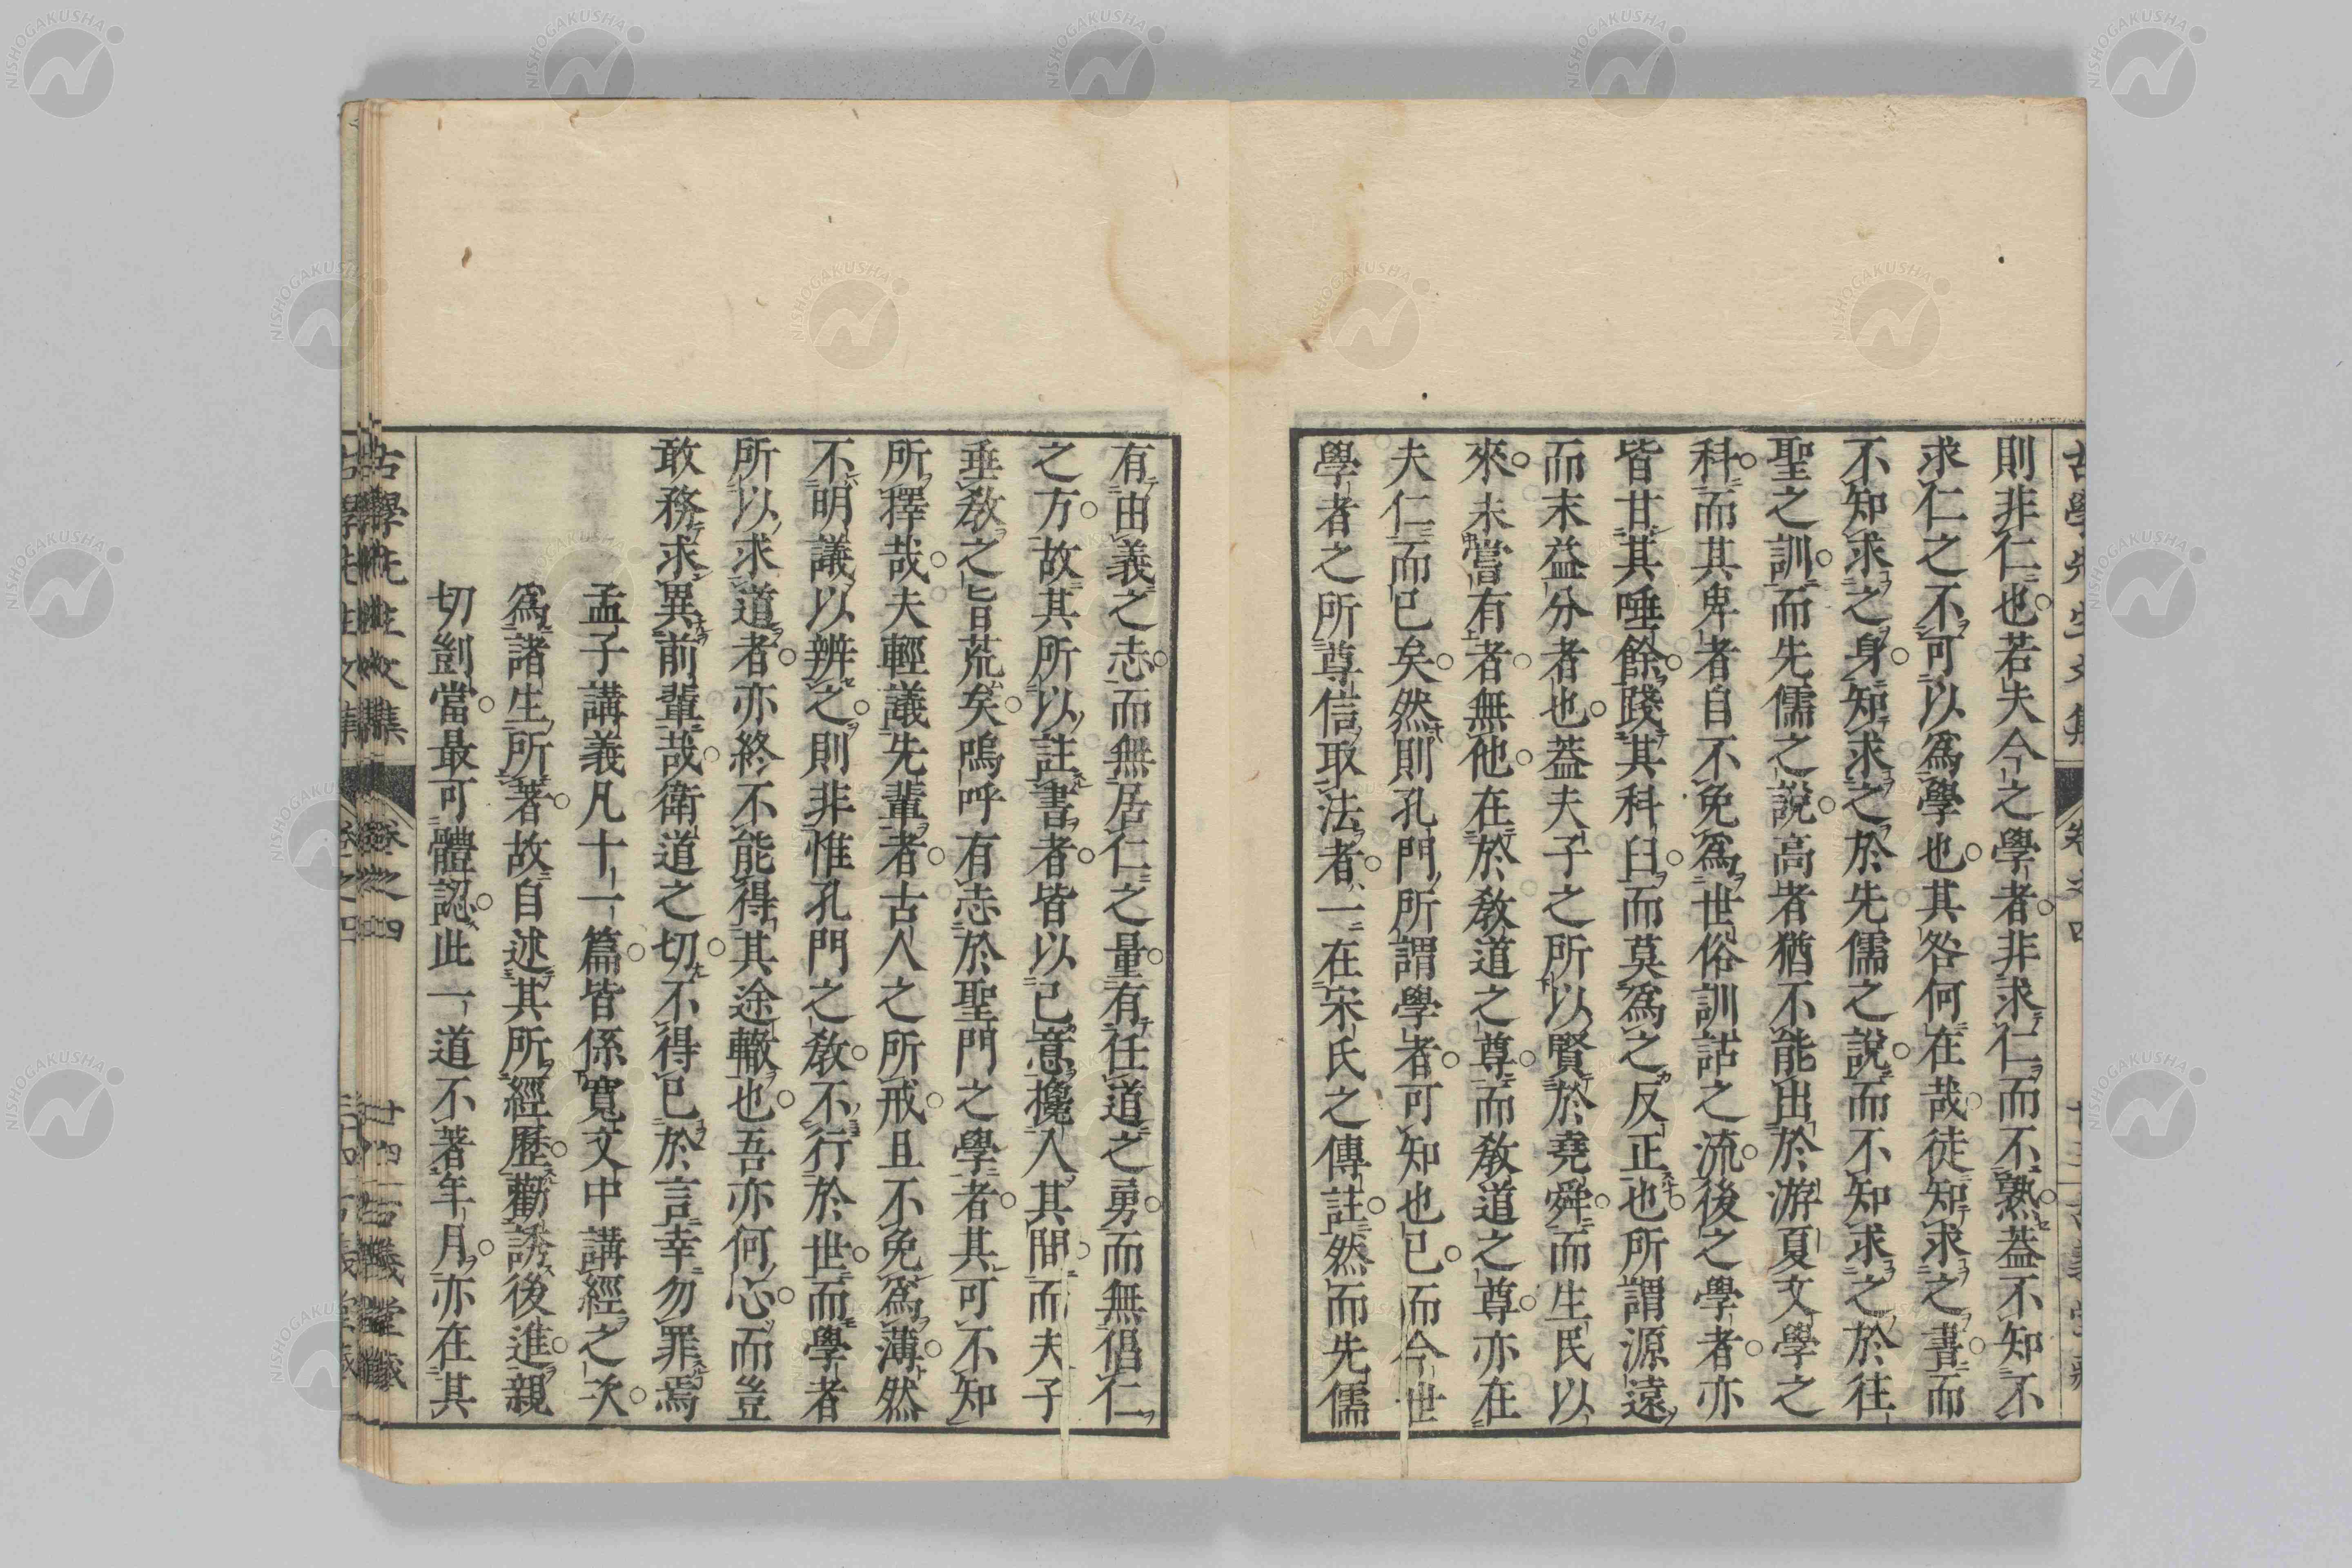 則非仁也若夫今之學者非求仁而不熟蓋不知不
求仁之不可以爲學也其咎何在哉徒知求之書而
不知求之身知求之於先儒之說而不知求之於往
聖之訓而先儒之說高者猶不能出於游夏文學之
科而其卑者自不免爲世俗訓詁之流後之學者亦
皆甘其唾餘踐其科臼而莫爲之反正也所謂源遠
而末益分者也蓋夫子之所以賢於堯舜而生民以
來未嘗有者無他在於敎道之尊而敎道之尊亦在
夫仁而已矣然則孔門所謂學者可知也已而今世
學者之所尊信取法者一在宋氏之傳註然而先儒
有由義之志而無居仁之量有任道之勇而無倡仁
之方故其所以註書者皆以己意攙入其間而夫子
垂敎之旨荒矣嗚呼有志於聖門之學者其可不知
所釋哉夫輕議先輩者古人之所戒且不免爲薄然
不明議以辨之則非惟孔門之敎不行於世而學者
所以求道者亦終不能得其途轍也吾亦何心而豈
敢務求異前輩哉衛道之切不得已於言幸勿罪焉
孟子講義凡十一篇皆係寬文中講經之次
爲諸生所著故自述其所經歷勸誘後進親
切剴當最可體認此一道不著年月亦在其
古學先生文集 卷之四 廿四 古義堂藏
NISHOGAKUSHA